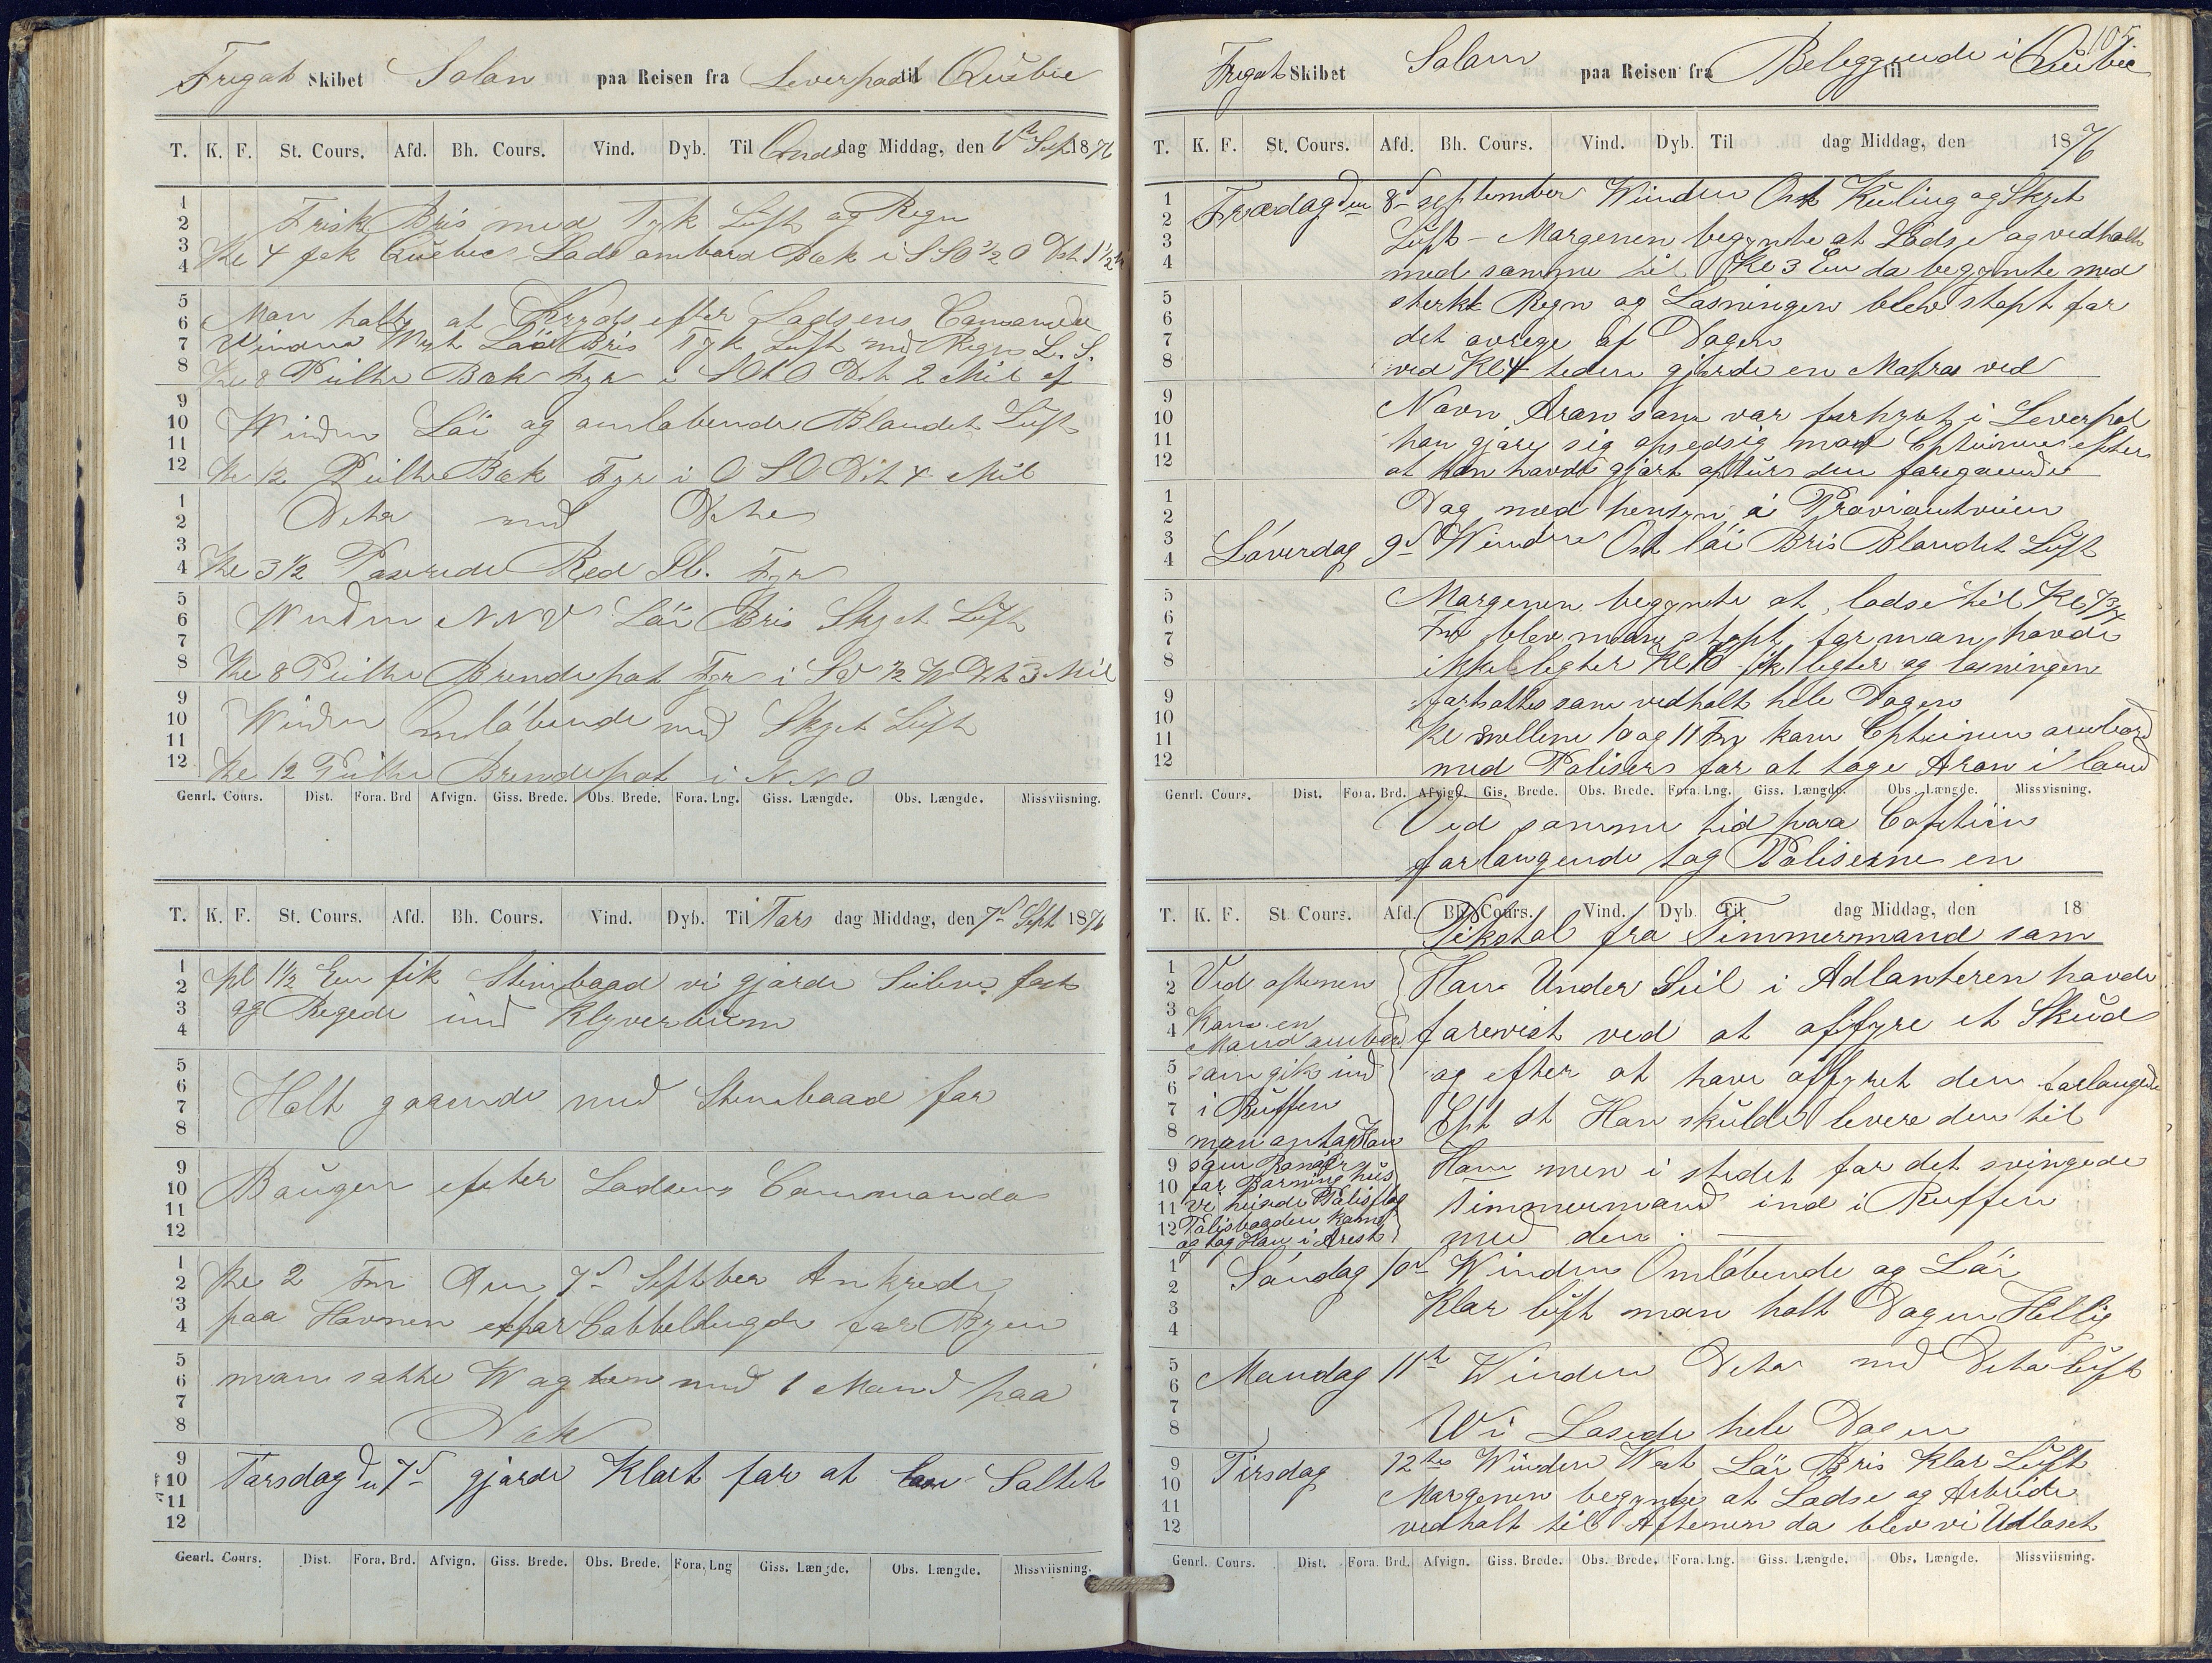 Fregat Skibet Solon paa Reisen fra Leverpool til Quebec
T. K. F. St. Cours. Afd. Bh. Cours. Vind. Dyb. Til Ons dag Middag, den 6te Sept 1876
1
2
3
4
Frisk Bris med Tyk Luft og Regn
Kl 4 fek Quebec Lods ombord Bek i SSO ½ O Dst 1½
5
6
7
8
Man holte at Kryds efter Lodsens Comando
Winden West Lai Bris Tyk Luft med Regn L. S.
Kl 8 Peilte Bek Fyr i SOtO Dst 2 Mil af
9
10
11
12
Winden Lai og omlobende Blandet Luft
Kl 12 Peilte Bek Fyr i OSO Dst 4 Mil
1
2
3
4
Dito med Dito
Kl 3½ Passerede Red Fyr
5
6
7
8
Winden NNV Lai Bris Skyet Luft
Kl 8 Peilte Brendepot Fyr i SV ½ W Dst 3 Mil
9
10
11
12
Winden Omlöbende med Skyet Luft
Kl 12 Peilte Brendepot i NNO
Genrl. Cours. Dist. Fora. Brd Afvign. Giss. Brede. Obs. Brede. Fora. Lng. Giss. Længde. Obs. Længde. Missviisning.
T. K. F. St. Cours. Afd. Bh. Cours. Vind. Dyb. Til Tors dag Middag, den 7d Sept 1876
1
2
3
4
Kl 1½ Em fik Stimbaad vi gjorde Seilene fast
og Regede ind Klyverbum
5
6
7
8
Holt gaaende med Stimbaad for
9
10
11
12
Baugen efter Lodsens Commando
1
2
3
4
Kl 2 Fm Den 7d Septber Ankrede
paa Havnen Cabbellengde for Byen
5
6
7
8
man satte Wagten med 1 Mand paa
Dæk
9
10
11
12
Torsdag den 7d gjorde Klart for at Saltet
Genrl. Cours. Dist. Fora. Brd. Afvign. Giss. Brede. Obs. Brede. Fora. Lng Giss. Længde. Obs. Længde. Missviisning.
105
Fregat Skibet Solon paa Reisen fra Beleggende i til Quebec
T. K. F. St. Cours. Afd. Bh. Cours. Vind. Dyb. Til dag Middag, den 1876
Fredag den 8d september Winden Ost Kuling og Skyet
Luft - Morgenen begynte at Lodse og vedholt
med samme til Kl 3 Em da begynte med
sterkt Regn og Losningen blev stopt for
det øvrige af Dagen
ved Kl 4 teden gjorde en Matros ved
Navn Aron som var forhyrt i Leverpol
han gjore sig opsedsig mod Cptinen efter
at han havde gjort den foregaaende
Dag med hensyn a Proviantveien
Löverdag 9d Winden Ost lai Bris Blandet Luft
Morgenen begynte at lodse til Kl 7¾
Fm blev man stopt for man havde
ikke legter Kl 10 fik legter og losningen
forsattes som vedholt hele Dagen
Kl mellem 10 og 11 Fm kom Cptinen ombord
med Polisers for at tage Aron i land
Genrl. Cours. Dist. Fora. Brd. Afvign. Gis. Brede. Obs. Brede. Fora. Lng. Giss. Længde. Obs. Længde. Missvisning.
Ved samme tid paa Coptein
forlangende tog Poliserne en
T. K. F. St. Cours. Afd. Bh. Cours. Vind. Dyb. Til dag Middag, den 18
Pikstol fra Timmermand som
Han Under Seil i Adlanteren havde
farevist ved at affyre et Skud
og efter at have affyret den forlangede
Cpt at Han skulde levere den til
Ham men i stedet for det svingede
Timmermand ind i Ruffen
med den.
Ved aftenen
Kom en
Mand ombord
som gik ind
i Ruffen
man antog Ham
som Ranner
for Barning hus
vi heisede Polisflag
Polisbaaden kom
og tog Ham i Arest
Söndag 10d Winden Omlöbende og Lai
Klar luft man holt Dagen Hellig
Mandag 11te Winden Dito med Dito luft
Wi Losede hele Dagen
Tirsdag 12te Winden West Lai Bris Klar Luft
Morgenen begynte at Lodse og Arbeide
vedholt til Aftenen da blev vi Udloset
Genrl. Cours. Dist. Fora. Brd. Afvign. Giss. Brede. Obs. Brede. Fora. Lng. Giss. Længde. Obs. Længde. Missviisning.